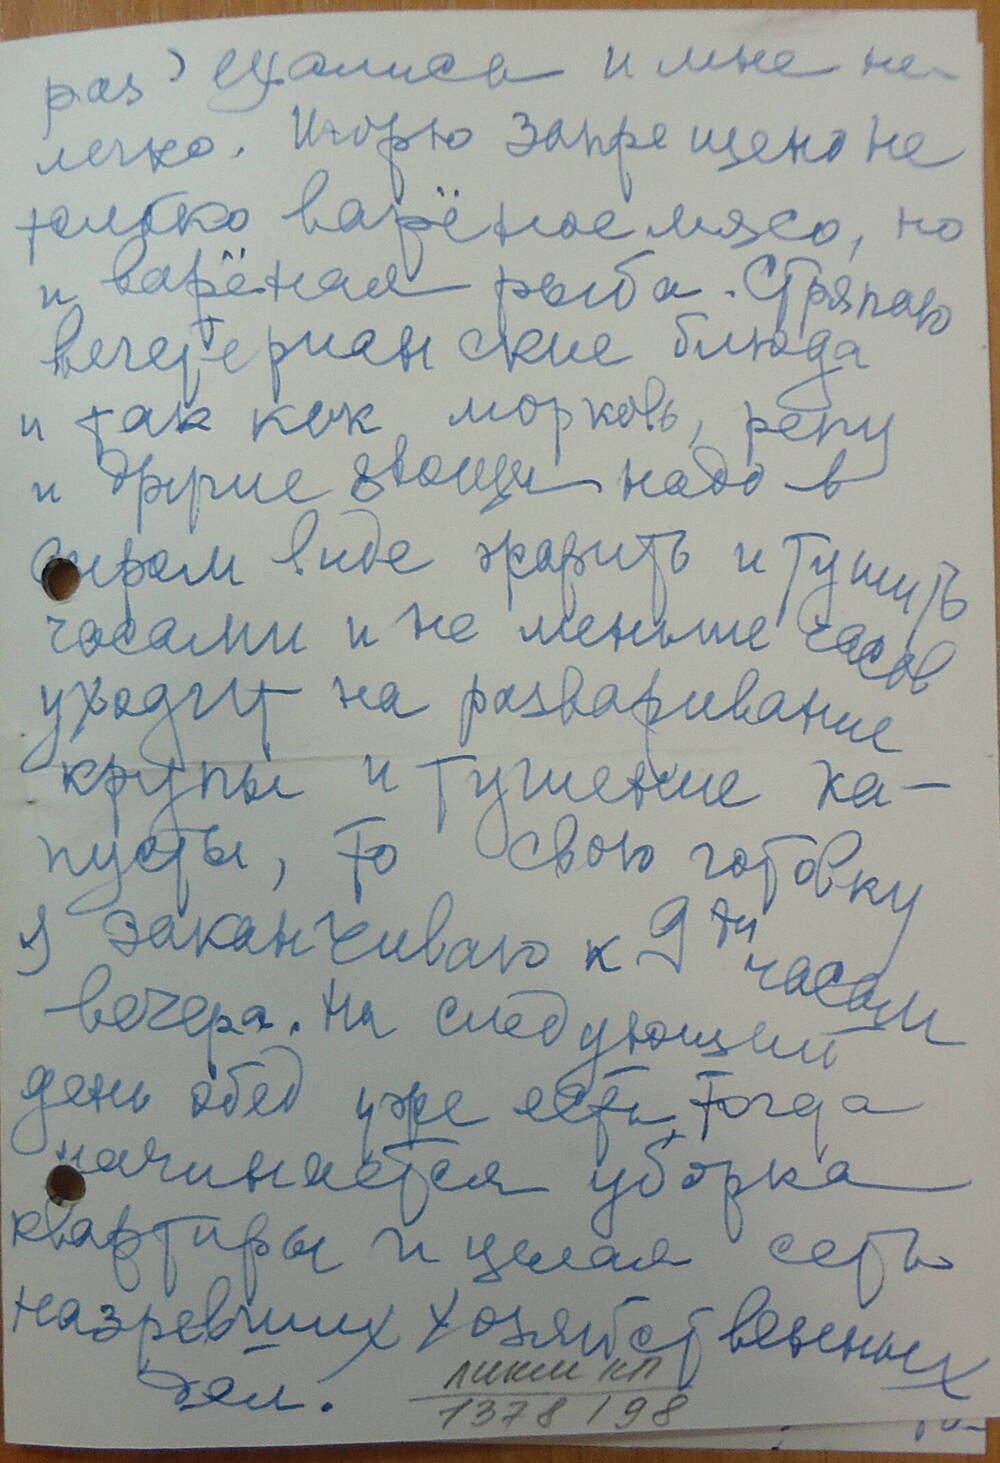 раз) ущались и мне не-
легко. Игорю запрещено не
только варёное мясо, но
и варёная рыба. Стряпаю
вегетерианские блюда
и так как морковь, репу
и другие овощи надо в
сыром виде жарить и тушить
часами и не меньше часов
уходит на разваривание
крупы и тушение ка-
пусты, то свою готовку
я заканчиваю к 9ти часам
вечера. На следующий
день обед уже есть, тогда
начинается уборка
квартиры и целая сеть
назревших хозяйственных
дел.
ЛИКМ КП
1378/98